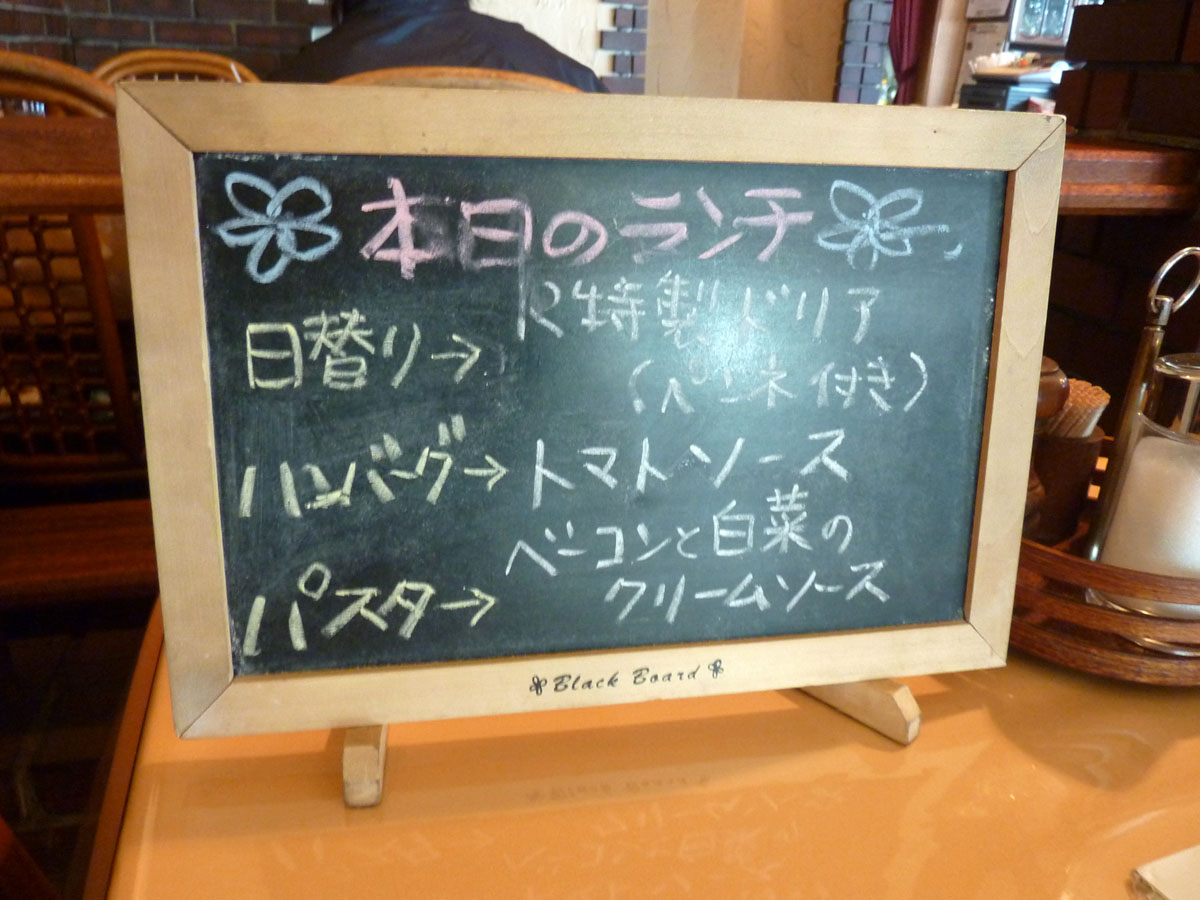 本日のランチ
日替り→R4特製ドリア
(ペンネ付き)
ハンバーグ→トマトソース
ベーコンと白菜の
パスタ→クリームソース
Black Board